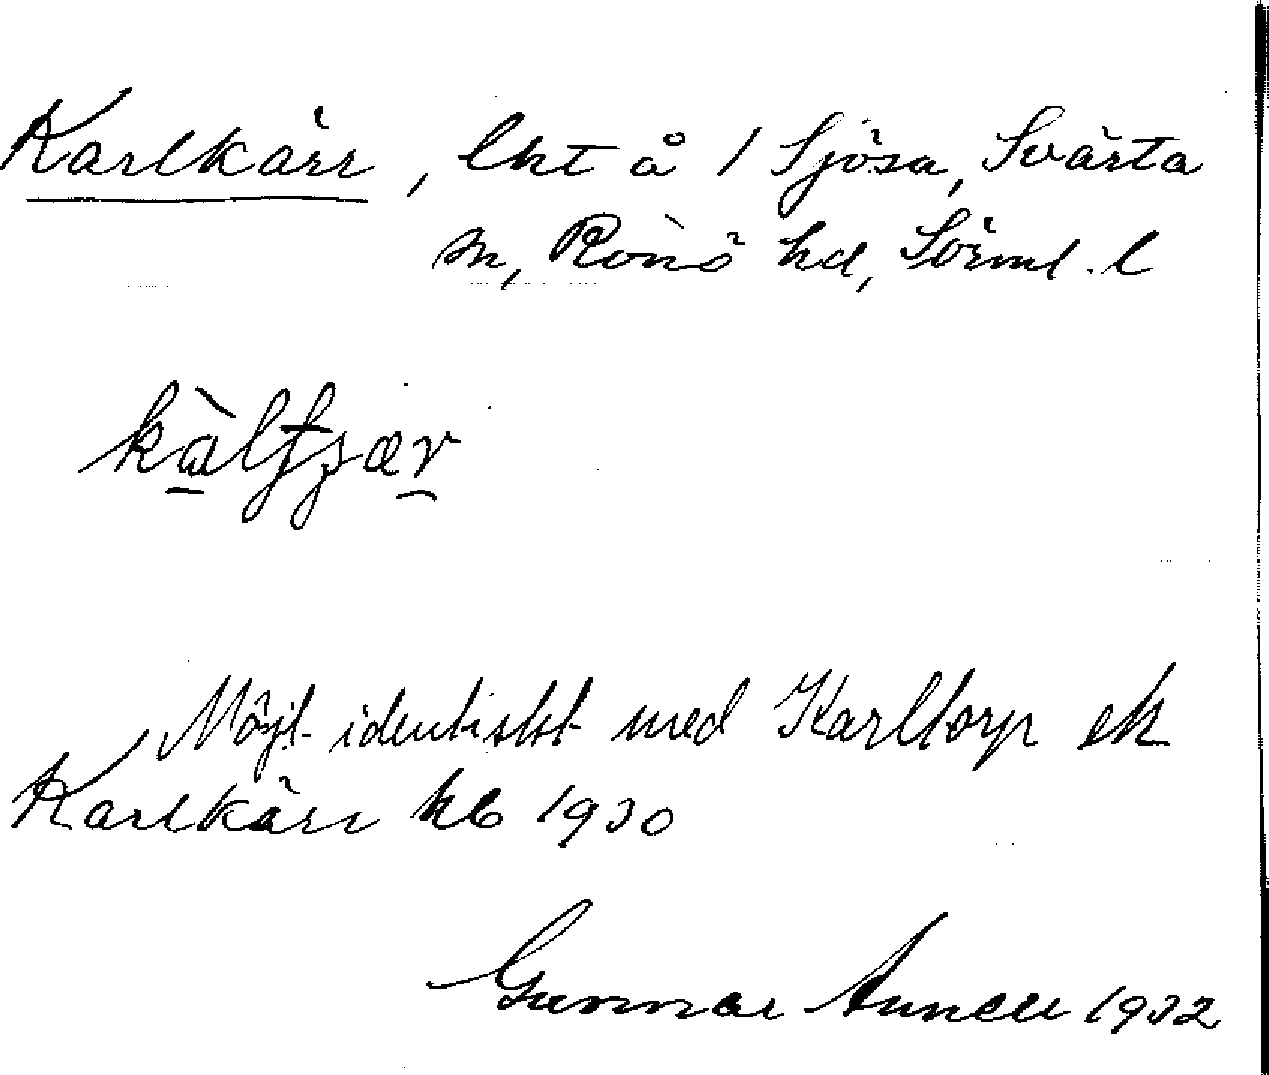 Karlkärr, lht å 1 Sjösa, Svärta
sn, Rönö hd, Sörml. l
Möjl. identiskt med Karltorp ek
Karlkärr kb 1930
Gunnar Annell 1932